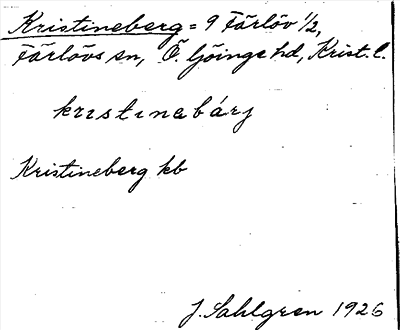 Kristineberg = 9 Färlöv 1/2,
Färlövs sn, Ö. Göinge hd, Krist. l.
kristinebárj
Kristineberg kb
J. Sahlgren 1926